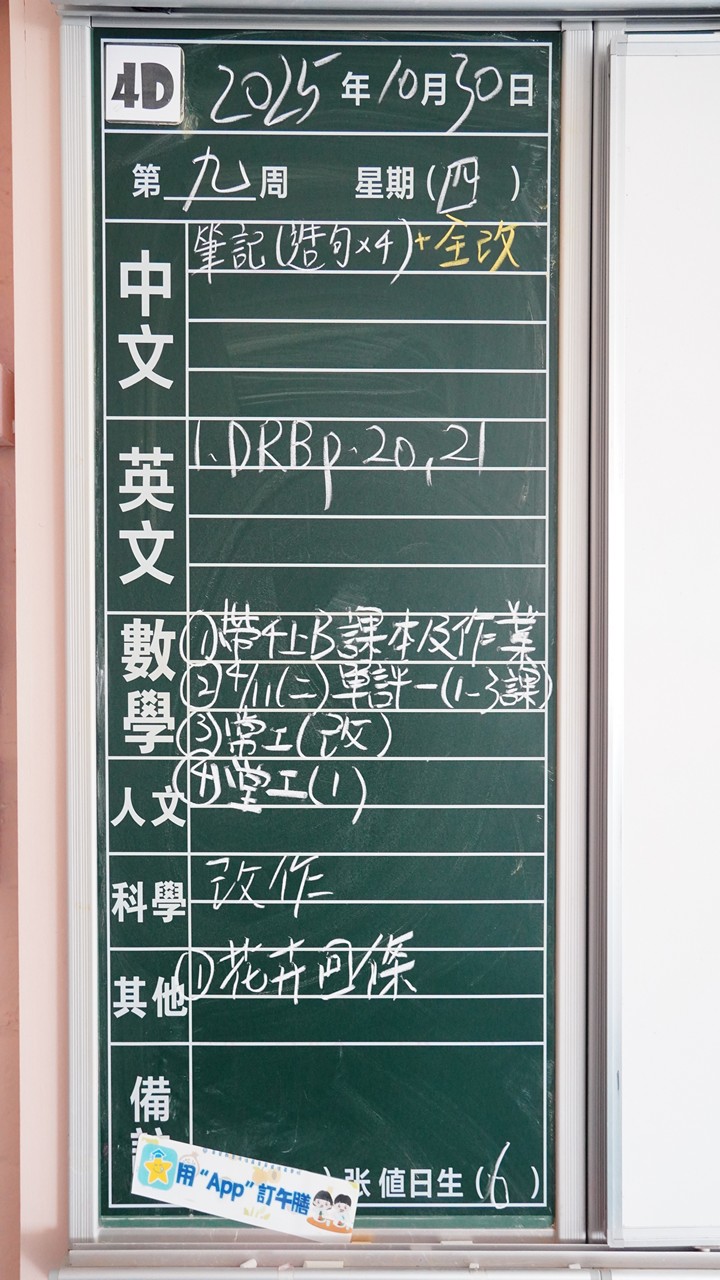 4D 2025年10月30日
第九周 星期(四)
中文 筆記(造句×4)+全改
英文 1.DRBp.20,21
數學 ①帶4上B課本及作業
②4/11(二)單評一(1-3課)
③常工(改)
④堂工(1)
人文
科學 改作
其他 ①花卉回條
備
張 值日生(6)
用“App”訂午膳